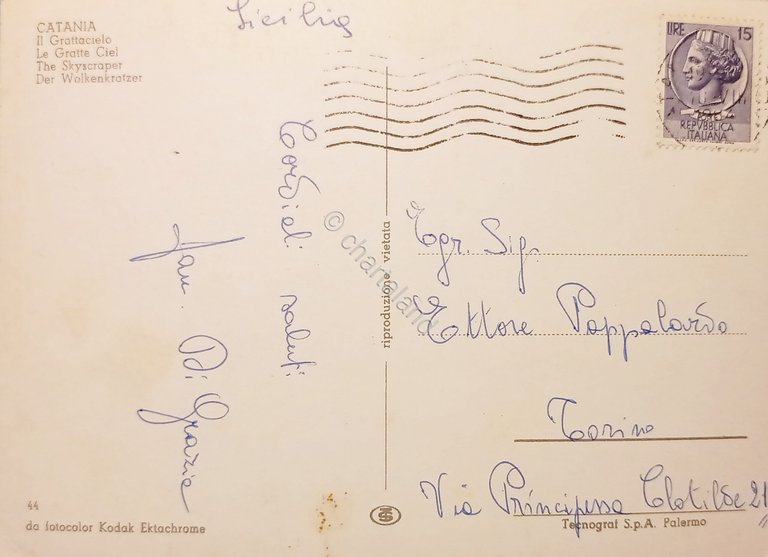 Sicilia
CATANIA
Il Grattacielo
Le Gratte Ciel
The Skyscraper
Der Wolkenkratzer
LIRE 15
REPVBBLICA
ITALIANA
Cordiali saluti
Fam. Di Grazia
© chartaland
riproduzione vietata
Egr. Sig.
Ettore Pappalardo
Torino
Via Principessa Clotilde 21
44
da fotocolor Kodak Ektachrome
Tecnograf S.p.A. Palermo